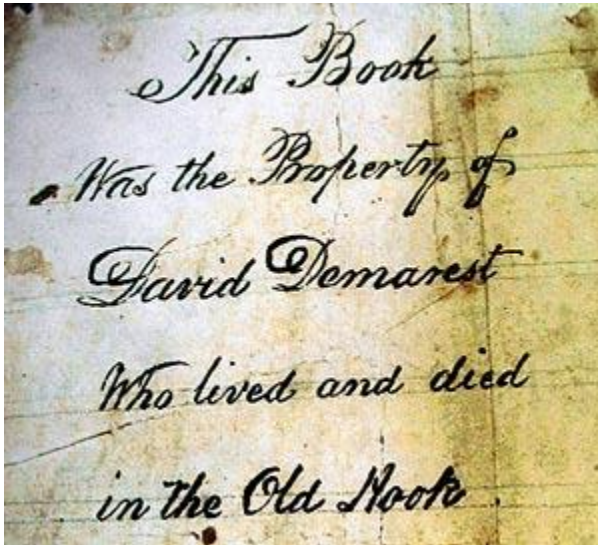 This Book
Was the Property of
David Demarest
Who lived and died
in the Old Hook.